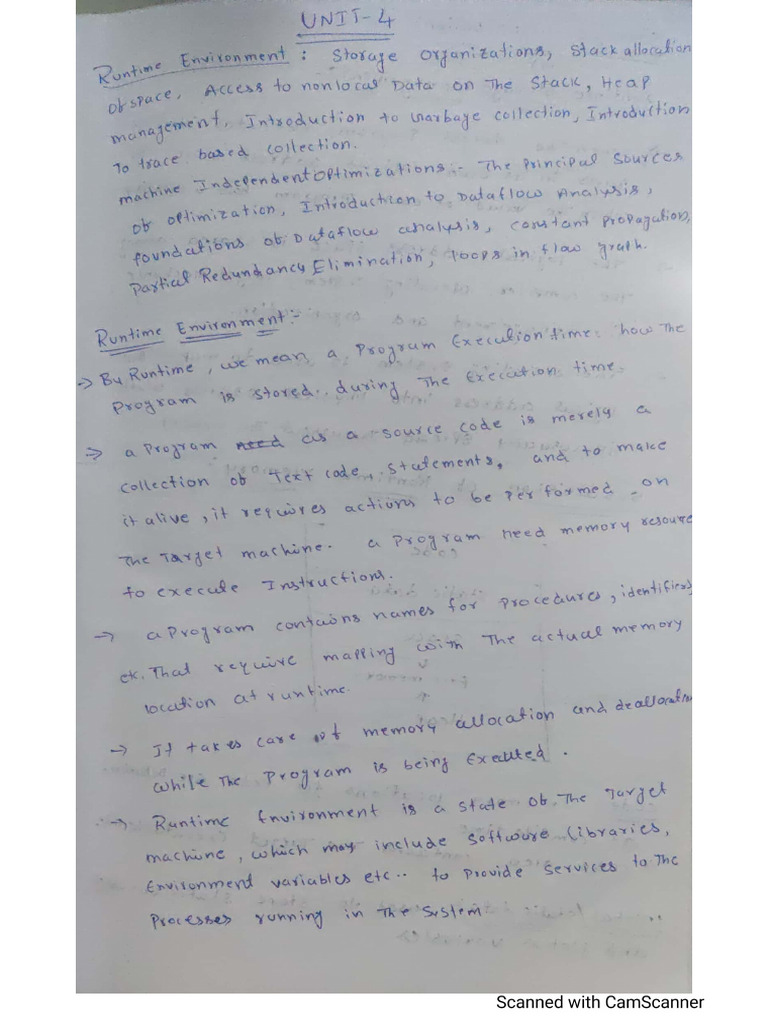 UNIT-4
Runtime Environment : Storage organizations, Stack allocation
of space, Access to nonlocal Data on The Stack, Heap
management, Introduction to Garbage collection, Introduction
To trace based collection.
machine Independent Optimizations:- The Principal Sources
of optimization, Introduction to Dataflow Analysis,
foundations of Dataflow analysis, constant Propagation,
Partial Redundancy Elimination, loops in flow graph.
Runtime Environment:-
-> By Runtime, we mean a Program Execution time. how The
Program is stored during The Execution time.
-> a Program as a source code is merely a
collection of Text code, Statements, and to make
it alive, it requires actions to be performed on
The Target machine. a Program need memory resource
to execute Instructions.
-> a Program contains names for Procedures, identifiers
etc. That require mapping with The actual memory
location at runtime.
-> It takes care of memory allocation and deallocation
while The Program is being Executed.
-> Runtime Environment is a state of The Target
machine, which may include software libraries,
Environment variables etc.. to Provide services to The
Processes running in The System
Scanned with CamScanner